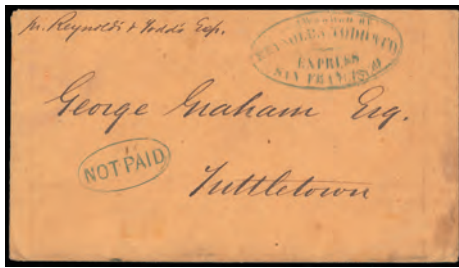 pr. Reynolds & Todd's Exp.
FORWARDED BY
REYNOLDS, TODD & CO
EXPRESS
SAN FRAN
George Graham Esq.
NOT PAID
Tuttletown